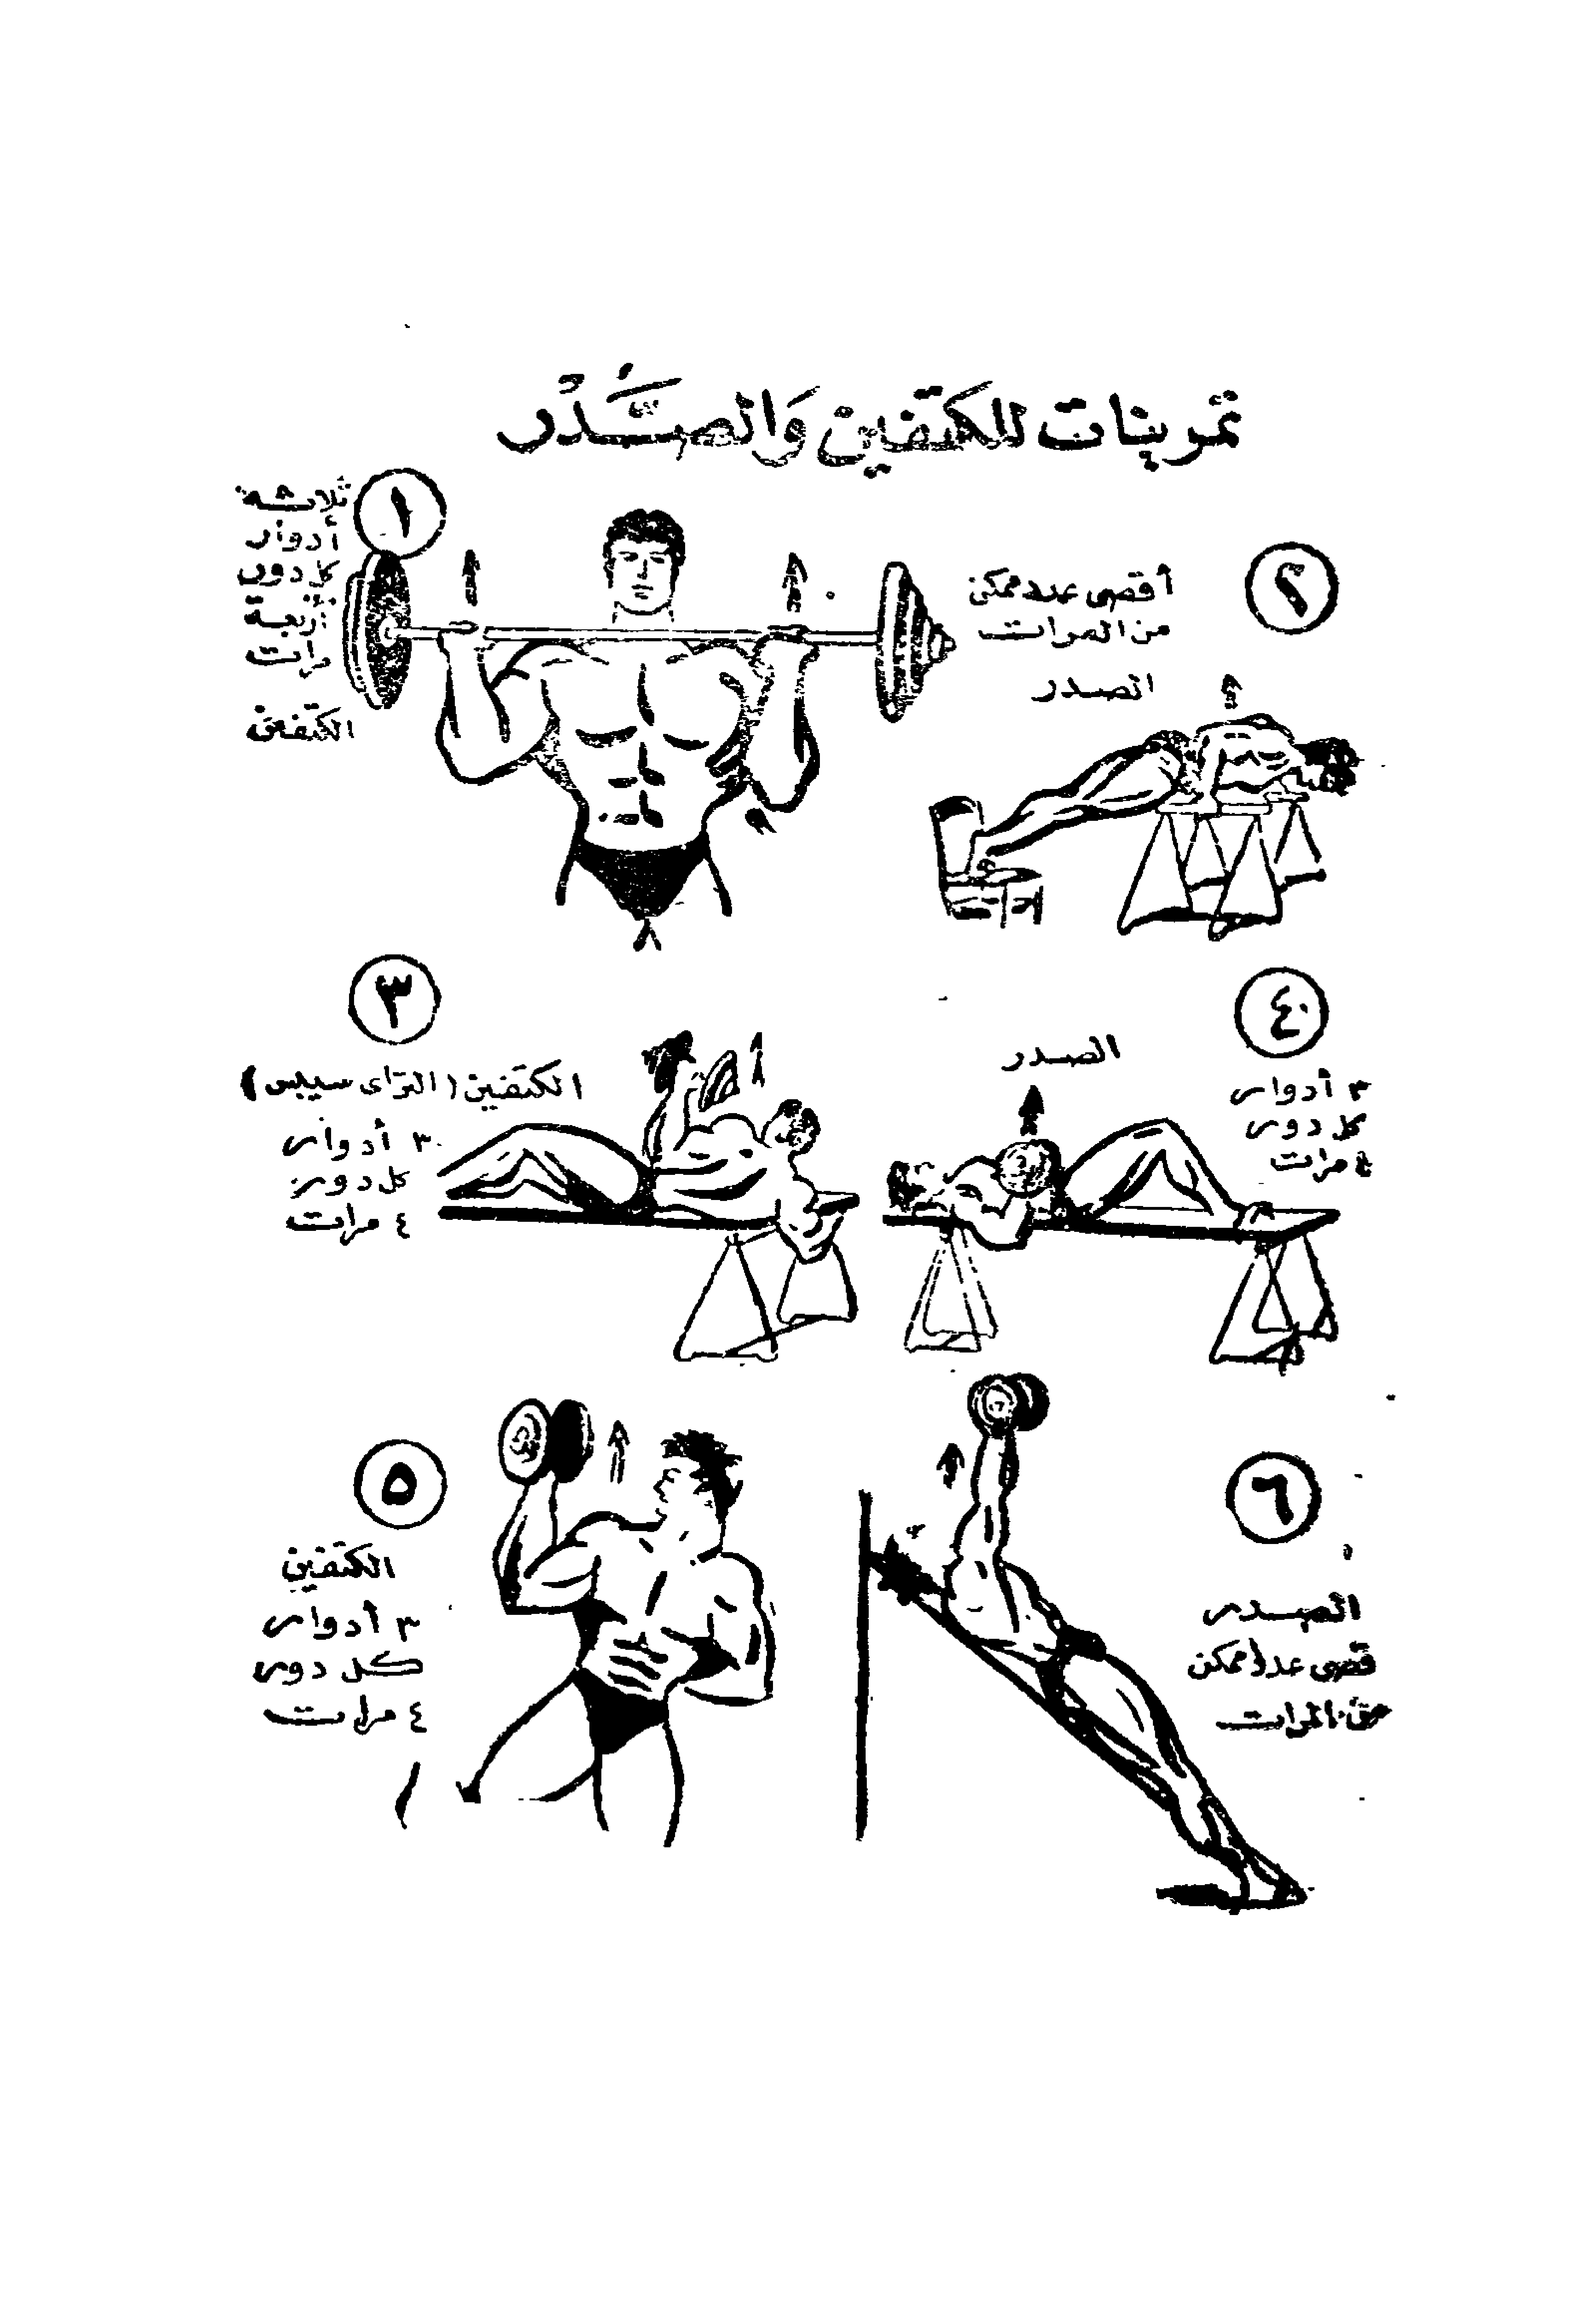 تمرينات للكتفين وَالصَّدْر
١
ثلاثة
أدوار
كل دور
أربعة
مرات
الكتفين
٢
أقصى عدد ممكن
من المرات
الصدر
٣
الكتفين (التراى سيبس)
٣ أدوار
كل دور
٤ مرات
٤
الصدر
٣ أدوار
كل دور
٤ مرات
٥
الكتفين
٣ أدوار
كل دور
٤ مرات
٦
الصدر
قصى عدد ممكن
من المرات